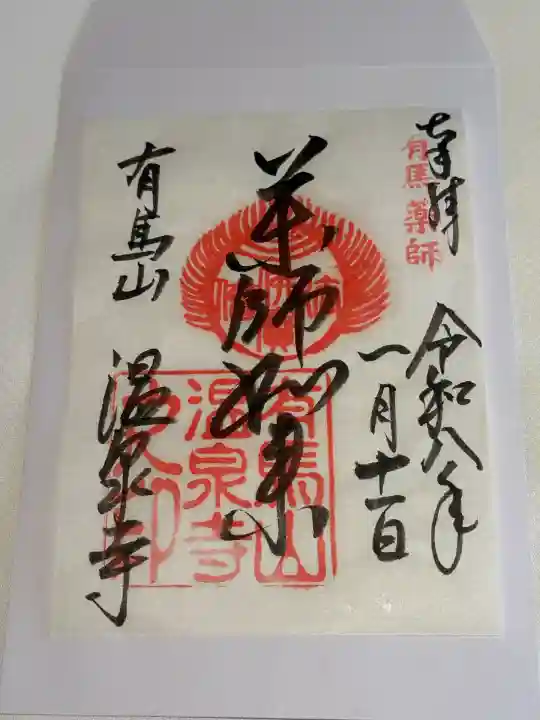 奉拝
有馬薬師
令和八年
一月十一日
薬師如来
有馬山
温泉寺
有馬山
温泉寺
之印